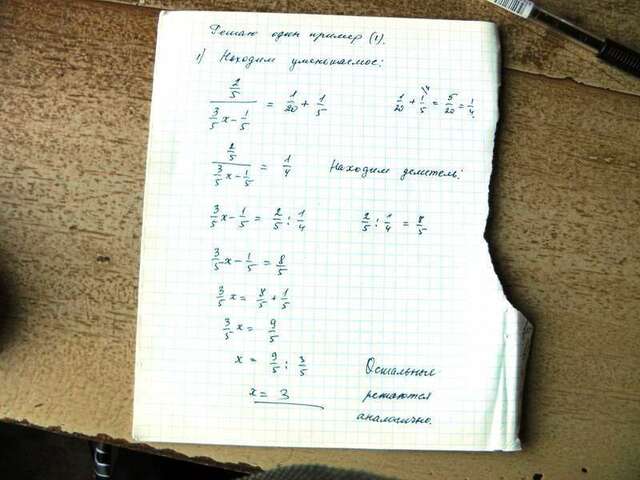 Решаю один пример (1).
1) Находим уменьшаемое:
2/5 / (3/5 x - 1/5) = 1/20 + 1/5    1/20 + 1/5 = 5/20 = 1/4
2/5 / (3/5 x - 1/5) = 1/4    Находим делитель:
3/5 x - 1/5 = 2/5 : 1/4    2/5 : 1/4 = 8/5
3/5 x - 1/5 = 8/5
3/5 x = 8/5 + 1/5
3/5 x = 9/5
x = 9/5 : 3/5
x = 3
Остальные
решаются
аналогично.